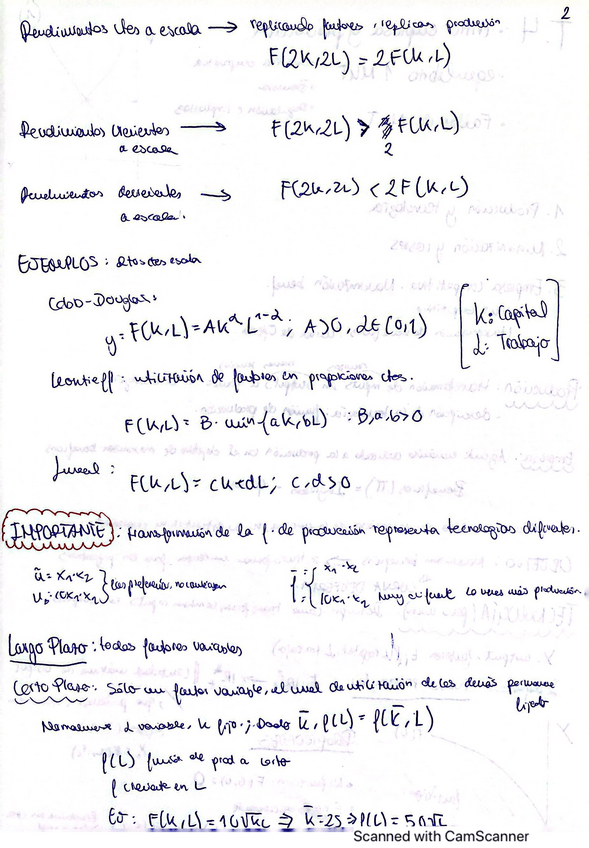 2
Rendimientos ctes a escala → replicando factores, replicas producción
F(2K,2L) = 2F(K,L)
Rendimientos crecientes → F(2K,2L) > 2 F(K,L)
a escala
Rendimientos decrecientes → F(2K,2L) < 2F(K,L)
a escala.
EJEMPLOS: Rtos ctes escala
Cobb-Douglas:
y = F(K,L) = AK^α L^1-α : A>0, α∈(0,1)
K: Capital
L: Trabajo
Leontieff: utilización de factores en proporciones ctes.
F(K,L) = B· mín{aK, bL} : B,a,b>0
Lineal:
F(K,L) = cK+dL; c,d>0
IMPORTANTE: transformación de la f. de producción representa tecnologías diferentes.
ũ = x₁·x₂
u = 10x₁·x₂ } las preferencias no cambian
x₁·x₂
10x₁·x₂ muy diferente lo veces más producción
Largo Plazo: todos factores variables
Corto Plazo: Sólo un factor variable, el nivel de utilización de los demás permanece
fijado
Normalmente L variable, K fijo; Dado K̄, f(L) = f(K̄, L)
f(L) función de prod a corto
f creciente en L
EJ: F(K,L) = 10√KL ⇒ K̄=25 ⇒ f(L) = 50√L
Scanned with CamScanner